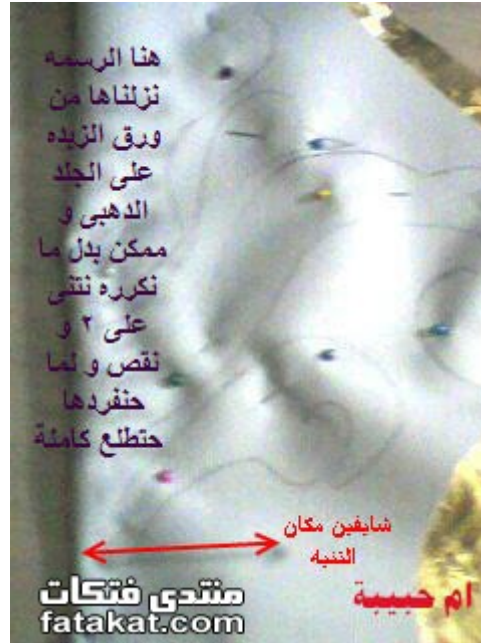 هنا الرسمه
نزلناها من
ورق الزبده
على الجلد
الدهبى و
ممكن بدل ما
نكرره نتنى
على ٢ و
نقص و لما
حنفردها
حتطلع كاملة
شايفين مكان
التنيه
ام حبيبة
منتدى فتكات
fatakat.com